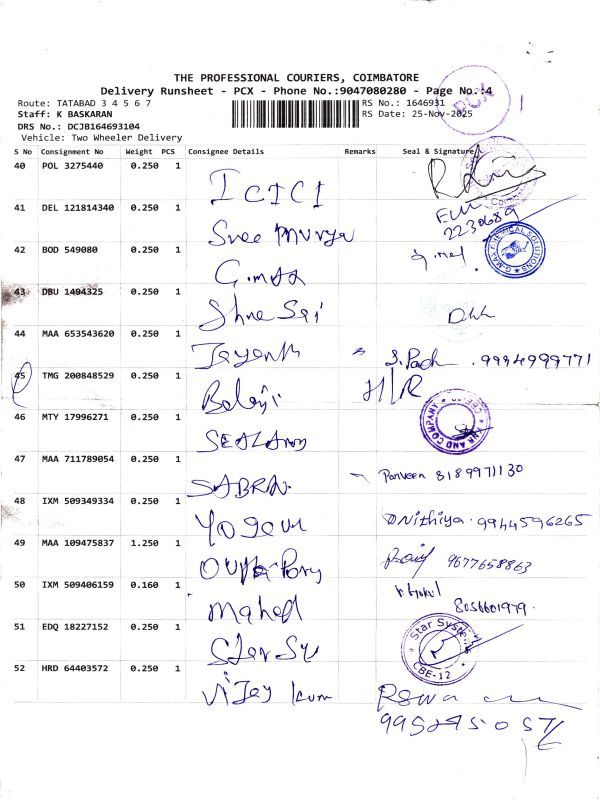 THE PROFESSIONAL COURIERS, COIMBATORE
Delivery Runsheet - PCX - Phone No.:9047080280 - Page No.:4
Route: TATABAD 3 4 5 6 7 RS No.: 1646931
Staff: K BASKARAN RS Date: 25-Nov-2025
DRS No.: DCJB164693104
Vehicle: Two Wheeler Delivery
PCX
S No Consignment No Weight PCS Consignee Details Remarks Seal & Signature
40 POL 3275440 0.250 1 ICICI
41 DEL 121814340 0.250 1 Sree Murya 2230689
42 BOD 549080 0.250 1 G.max
43 DBU 1494325 0.250 1 Shree Sai
44 MAA 653543620 0.250 1 Jayanth 9994999771
45 TMG 200848529 0.250 1 Balaji H/R
46 MTY 17996271 0.250 1 AND COMPANY
47 MAA 711789054 0.250 1 Parveen 8189971130
48 IXM 509349334 0.250 1 D Nithiya 9944596265
49 MAA 109475837 1.250 1 9677658863
50 IXM 509406159 0.160 1 Mahed 8056601979
51 EDQ 18227152 0.250 1 Star Sy Star Systems CBE-12
52 HRD 64403572 0.250 1 Vijay kum